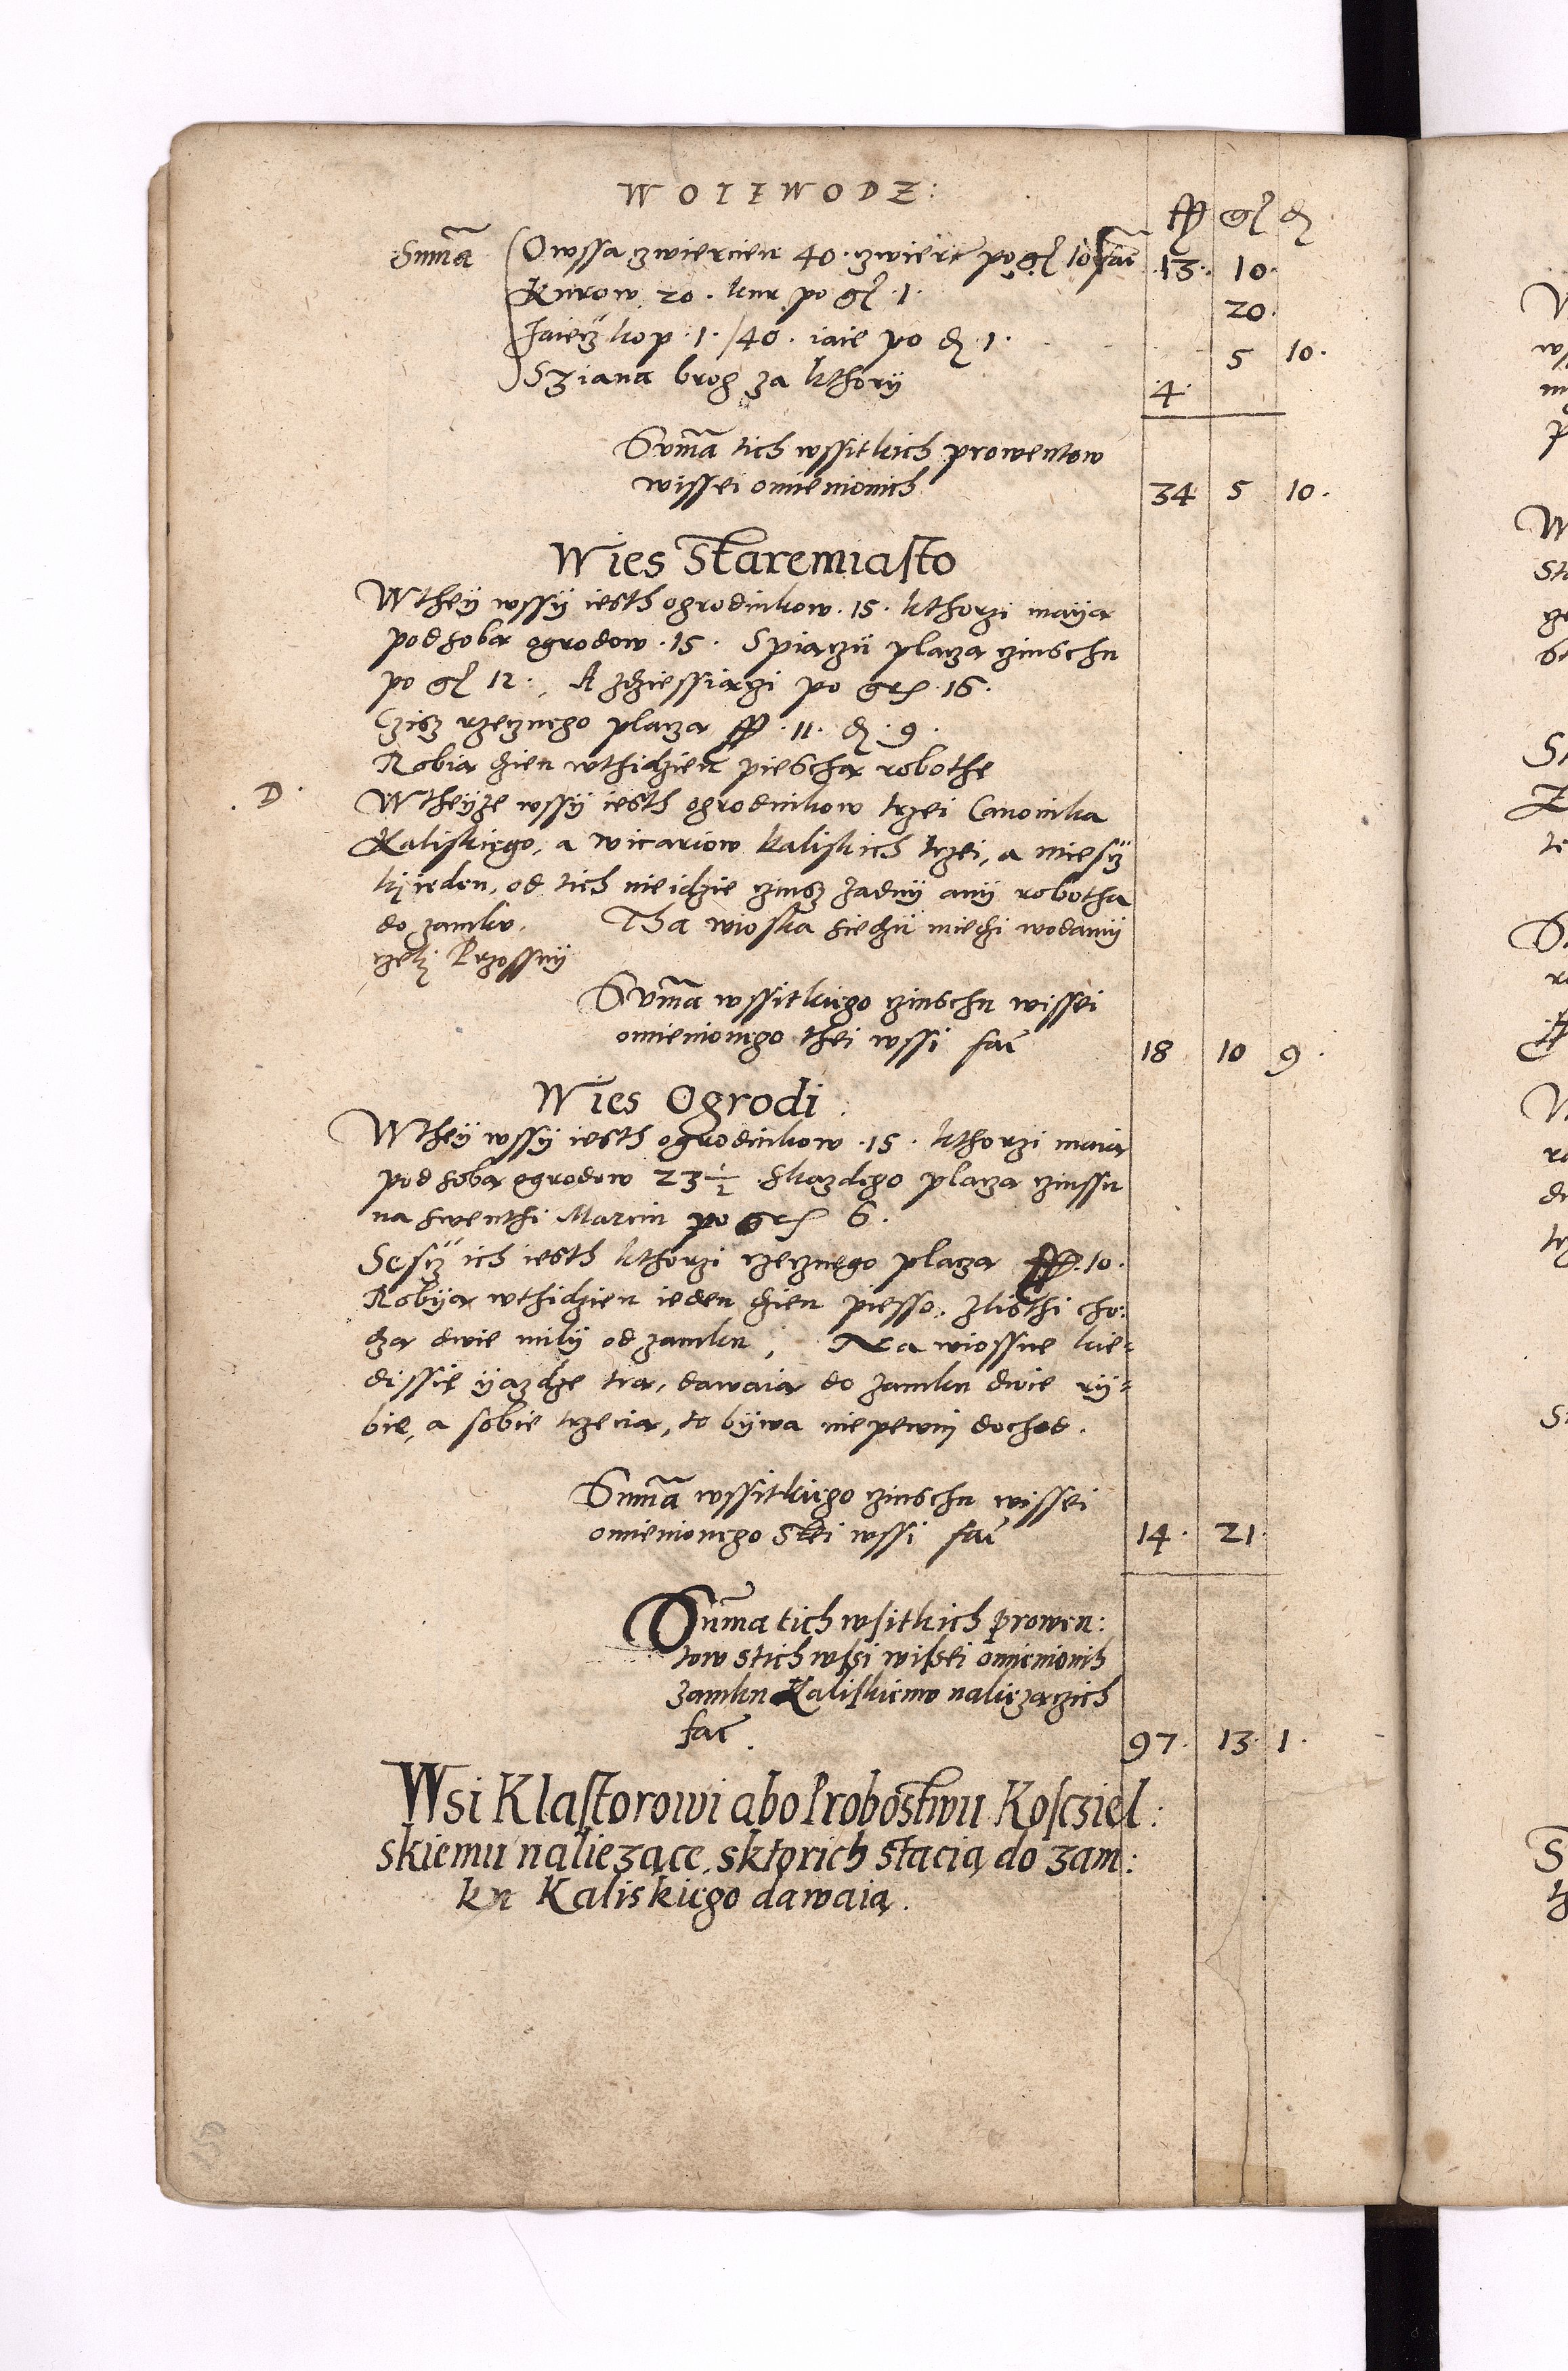 WOIEWODZ:
ff gr d
Suma Owssa zwiercien 40. zwierc po gr 10 fac 13. 10.
Kurow 20. kur po gr 1. 20.
Jaiecz kop 1. /40. iaie po d 1. 5 10.
Sziana brog za kthorÿ 4.
Suma tich wssitkich prowentow
wissei omienionich 34 5 10.
Wies Staremiasto
W theÿ wssÿ iesth ogrodnikow .15. kthorzi maÿa
pod soba ogrodow .15. S piaczu placza czinschu
po gr 12. A zdziessiaczi po gr 16.
Czisz rzecznego placza ff .11. d .9.
Robia dzien wthidzien piescha robothe
.D. W theÿze wssÿ iesth ogrodnikow trzei Canonika
Kaliskiego, a wicariow kaliskich trzei, a miesÿ
kÿ ieden, od tich nie idzie czinsz zadnÿ anÿ robotha
do zamku. Tha wioska siedzu miedzi wodamÿ
rzekÿ Przossnÿ
Suma wssitkiego czinschu wissei
omienionego thei wssi fac 18 10 9.
Wies Ogrodi.
W theÿ wssÿ iesth ogrodnikow .15. kthorzi maia
pod soba ogrodow 23 1/2 skazdego placza czinssu
na swenthi Marcin po gr 6.
Sesÿ ich iesth kthorzi rzecznego placza ff .10.
Robÿa wthidzien ieden dzien piesso. Zlisthi cho:
dza dwie milÿ od zamku, Na wiossne kie=
dissie ÿazdze tra, dawaia do zamku dwie rÿ=
bie, a sobie trzecia, to bÿwa niepewnÿ dochod.
Suma wssitkiego czinschu wissei
omienionego Stei wssi fac 14. 21.
Suma tich wsitkich prowen:
tow stich wsi wissei omienionih
Zamku Kaliskiemu naliezaczich
fac. 97. 13. 1.
Wsi Klastorowi abo Probostwu Kosczіel:
skiemu naliezące, sktorich stacią do zam:
ku Kaliskiego dawaią.